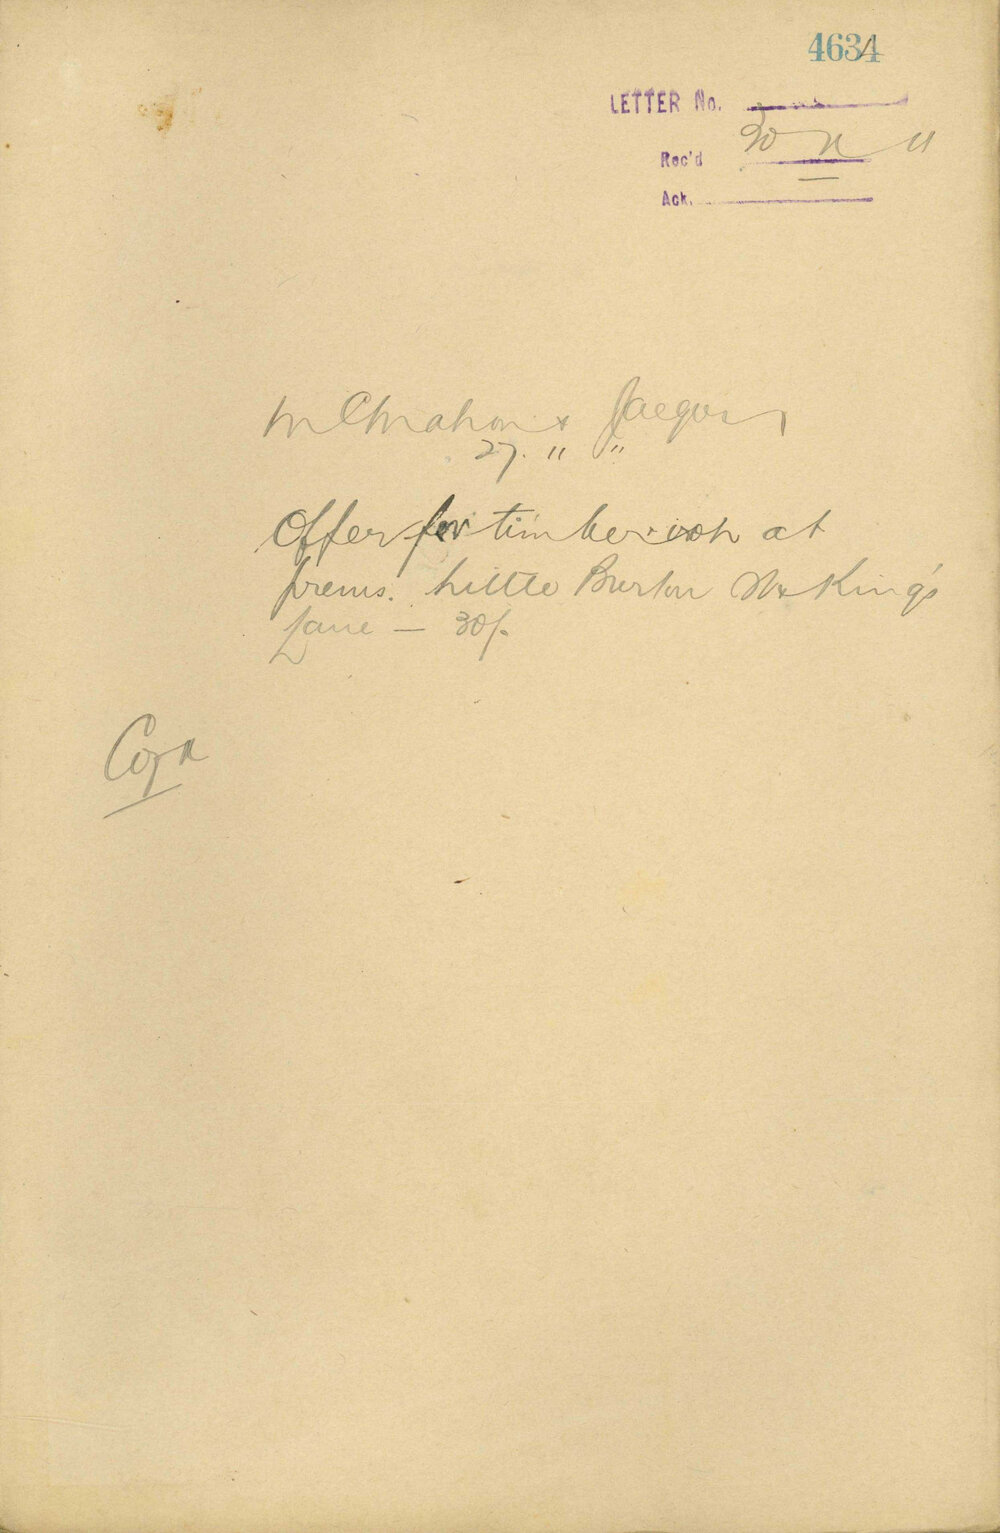 4634
LETTER No.
Rec'd 30 11
Ack.
McMahon & Jaegers
27. " "
Offer for timber iron at
prems. Little Burton St & King's
Lane — 30/-